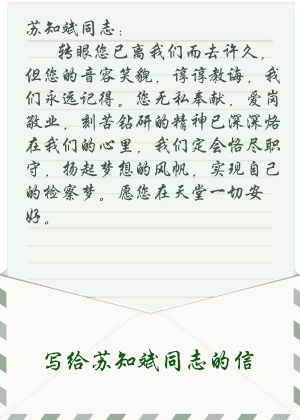 苏知斌同志：
转眼您已离我们而去许久，
但您的音容笑貌，谆谆教诲，我
们永远记得。您无私奉献，爱岗
敬业，刻苦钻研的精神已深深烙
在我们的心里，我们定会恪尽职
守，扬起梦想的风帆，实现自己
的检察梦。愿您在天堂一切安
好。
写给苏知斌同志的信